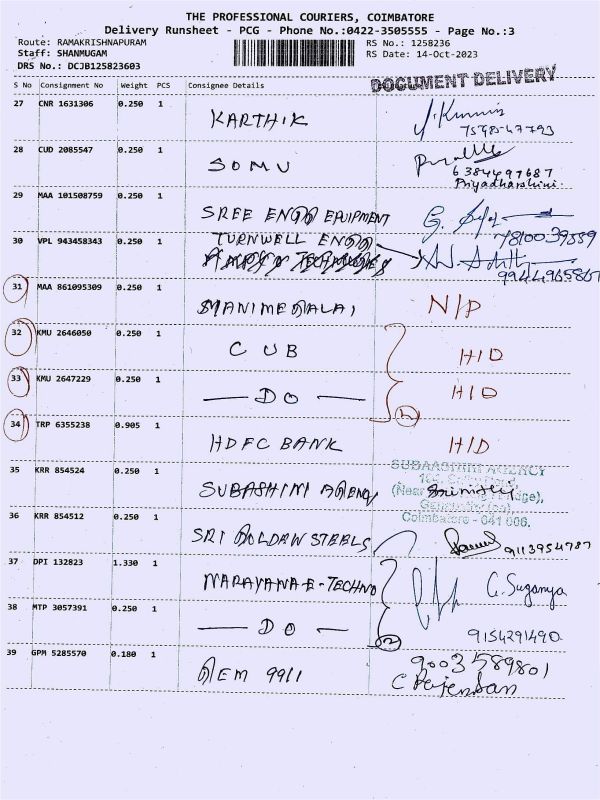 THE PROFESSIONAL COURIERS, COIMBATORE
Delivery Runsheet - PCG - Phone No.:0422-3505555 - Page No.:3
Route: RAMAKRISHNAPURAM RS No.: 1258236
Staff: SHANMUGAM RS Date: 14-Oct-2023
DRS No.: DCJB125823603
DOCUMENT DELIVERY
S No Consignment No Weight PCS Consignee Details
27 CNR 1631306 0.250 1 KARTHIK
28 CUD 2085547 0.250 1 SOMU
6384497687
Priyadharshini
29 MAA 101508759 0.250 1 SREE ENGG EQUIPMENT
7810039559
30 VPL 943458343 0.250 1 TURNWELL ENGG
31 MAA 861095309 0.250 1 MANIMEGALAI N/P
32 KMU 2646050 0.250 1 CUB H/D
33 KMU 2647229 0.250 1 — DO — H/D
34 TRP 6355238 0.905 1 HDFC BANK H/D
35 KRR 854524 0.250 1 SUBASHINI AGENCY
SUBAASHINI AGENCY
Coimbatore - 641 006.
36 KRR 854512 0.250 1 SRI GOLDEN STEELS 9113954787
37 DPI 132823 1.330 1 NARAYANA E-TECHNO G. Suganya
38 MTP 3057391 0.250 1 — DO — 2
9154291490
39 GPM 5285570 0.180 1 GEM 9911 9003589801